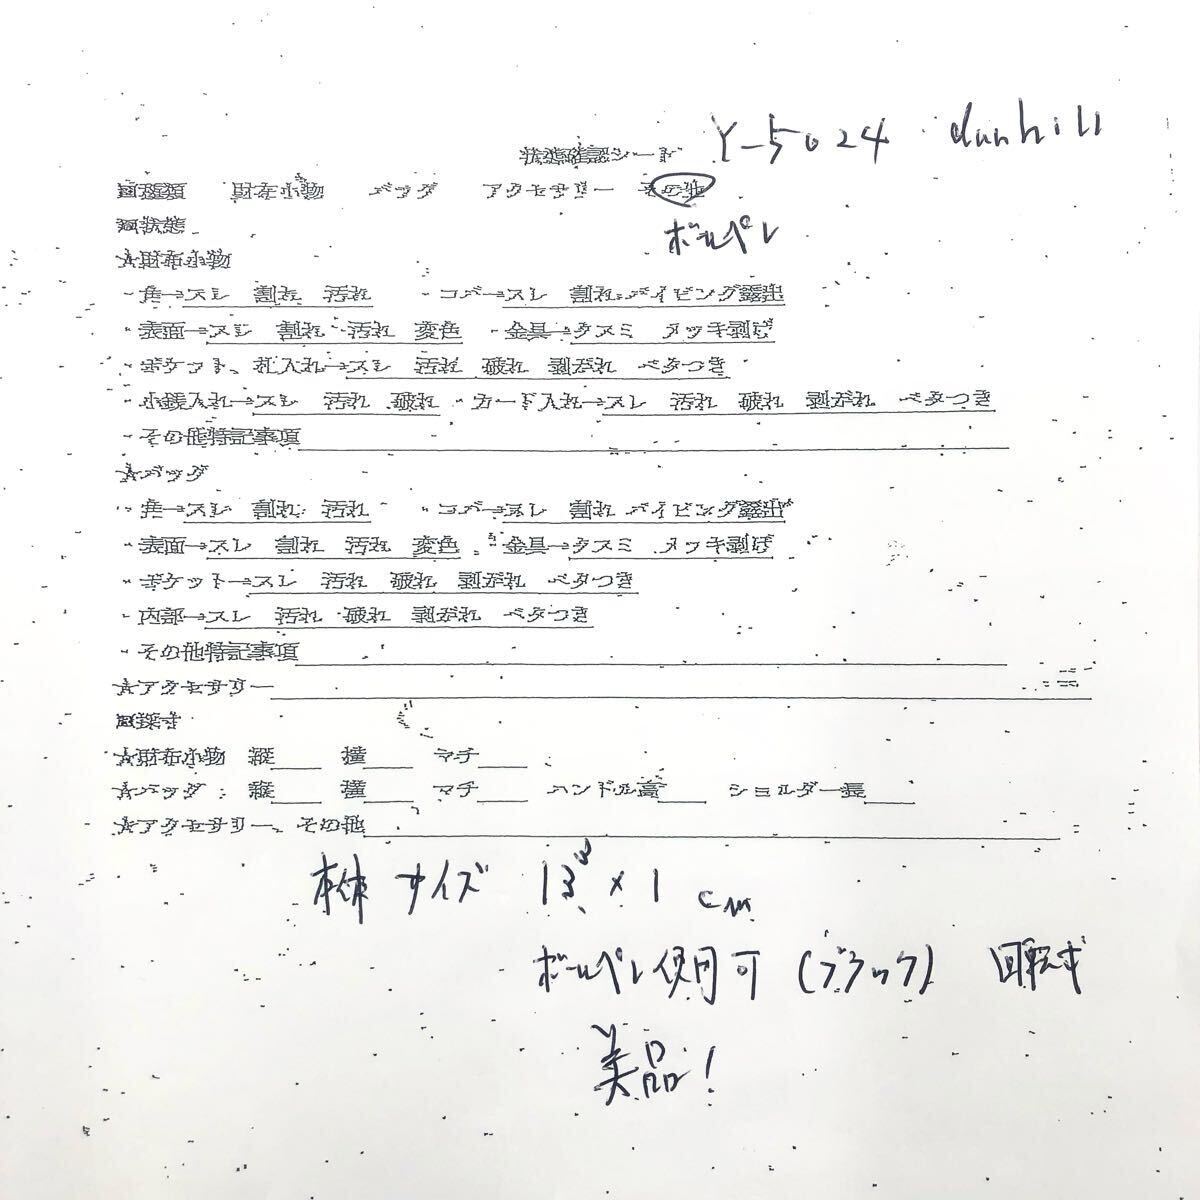 Y-5024 dunhill
状態確認シート
□種類 財布小物 バッグ アクセサリー その他
□状態 ボールペン
★財布小物
・角→スレ 割れ 汚れ ・コバ→スレ 割れ パイピング露出
・表面→スレ 割れ 汚れ 変色 ・金具→クスミ メッキ剥げ
・ポケット、札入れ→スレ 汚れ 破れ 剥がれ ベタつき
・小銭入れ→スレ 汚れ 破れ ・カード入れ→スレ 汚れ 破れ 剥がれ ベタつき
・その他特記事項
★バッグ
・角→スレ 割れ 汚れ ・コバ→スレ 割れ パイピング露出
・表面→スレ 割れ 汚れ 変色 ・金具→クスミ メッキ剥げ
・ポケット→スレ 汚れ 破れ 剥がれ ベタつき
・内部→スレ 汚れ 破れ 剥がれ ベタつき
・その他特記事項
★アクセサリー
□採寸
★財布小物 縦 横 マチ
★バッグ 縦 横 マチ ハンドル高 ショルダー長
★アクセサリー、その他
本体サイズ 13 × 1 cm
ボールペン使用可 (ブラック) 回転式
美品!